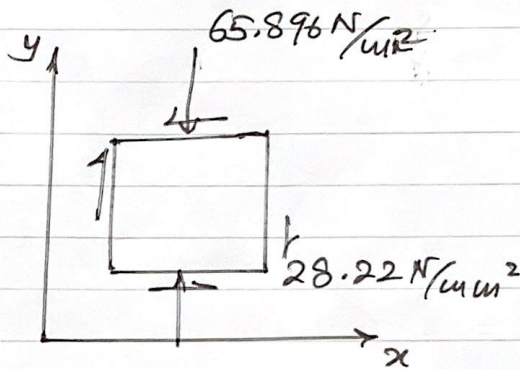 65.896 N/mm²
y
28.22 N/mm²
x